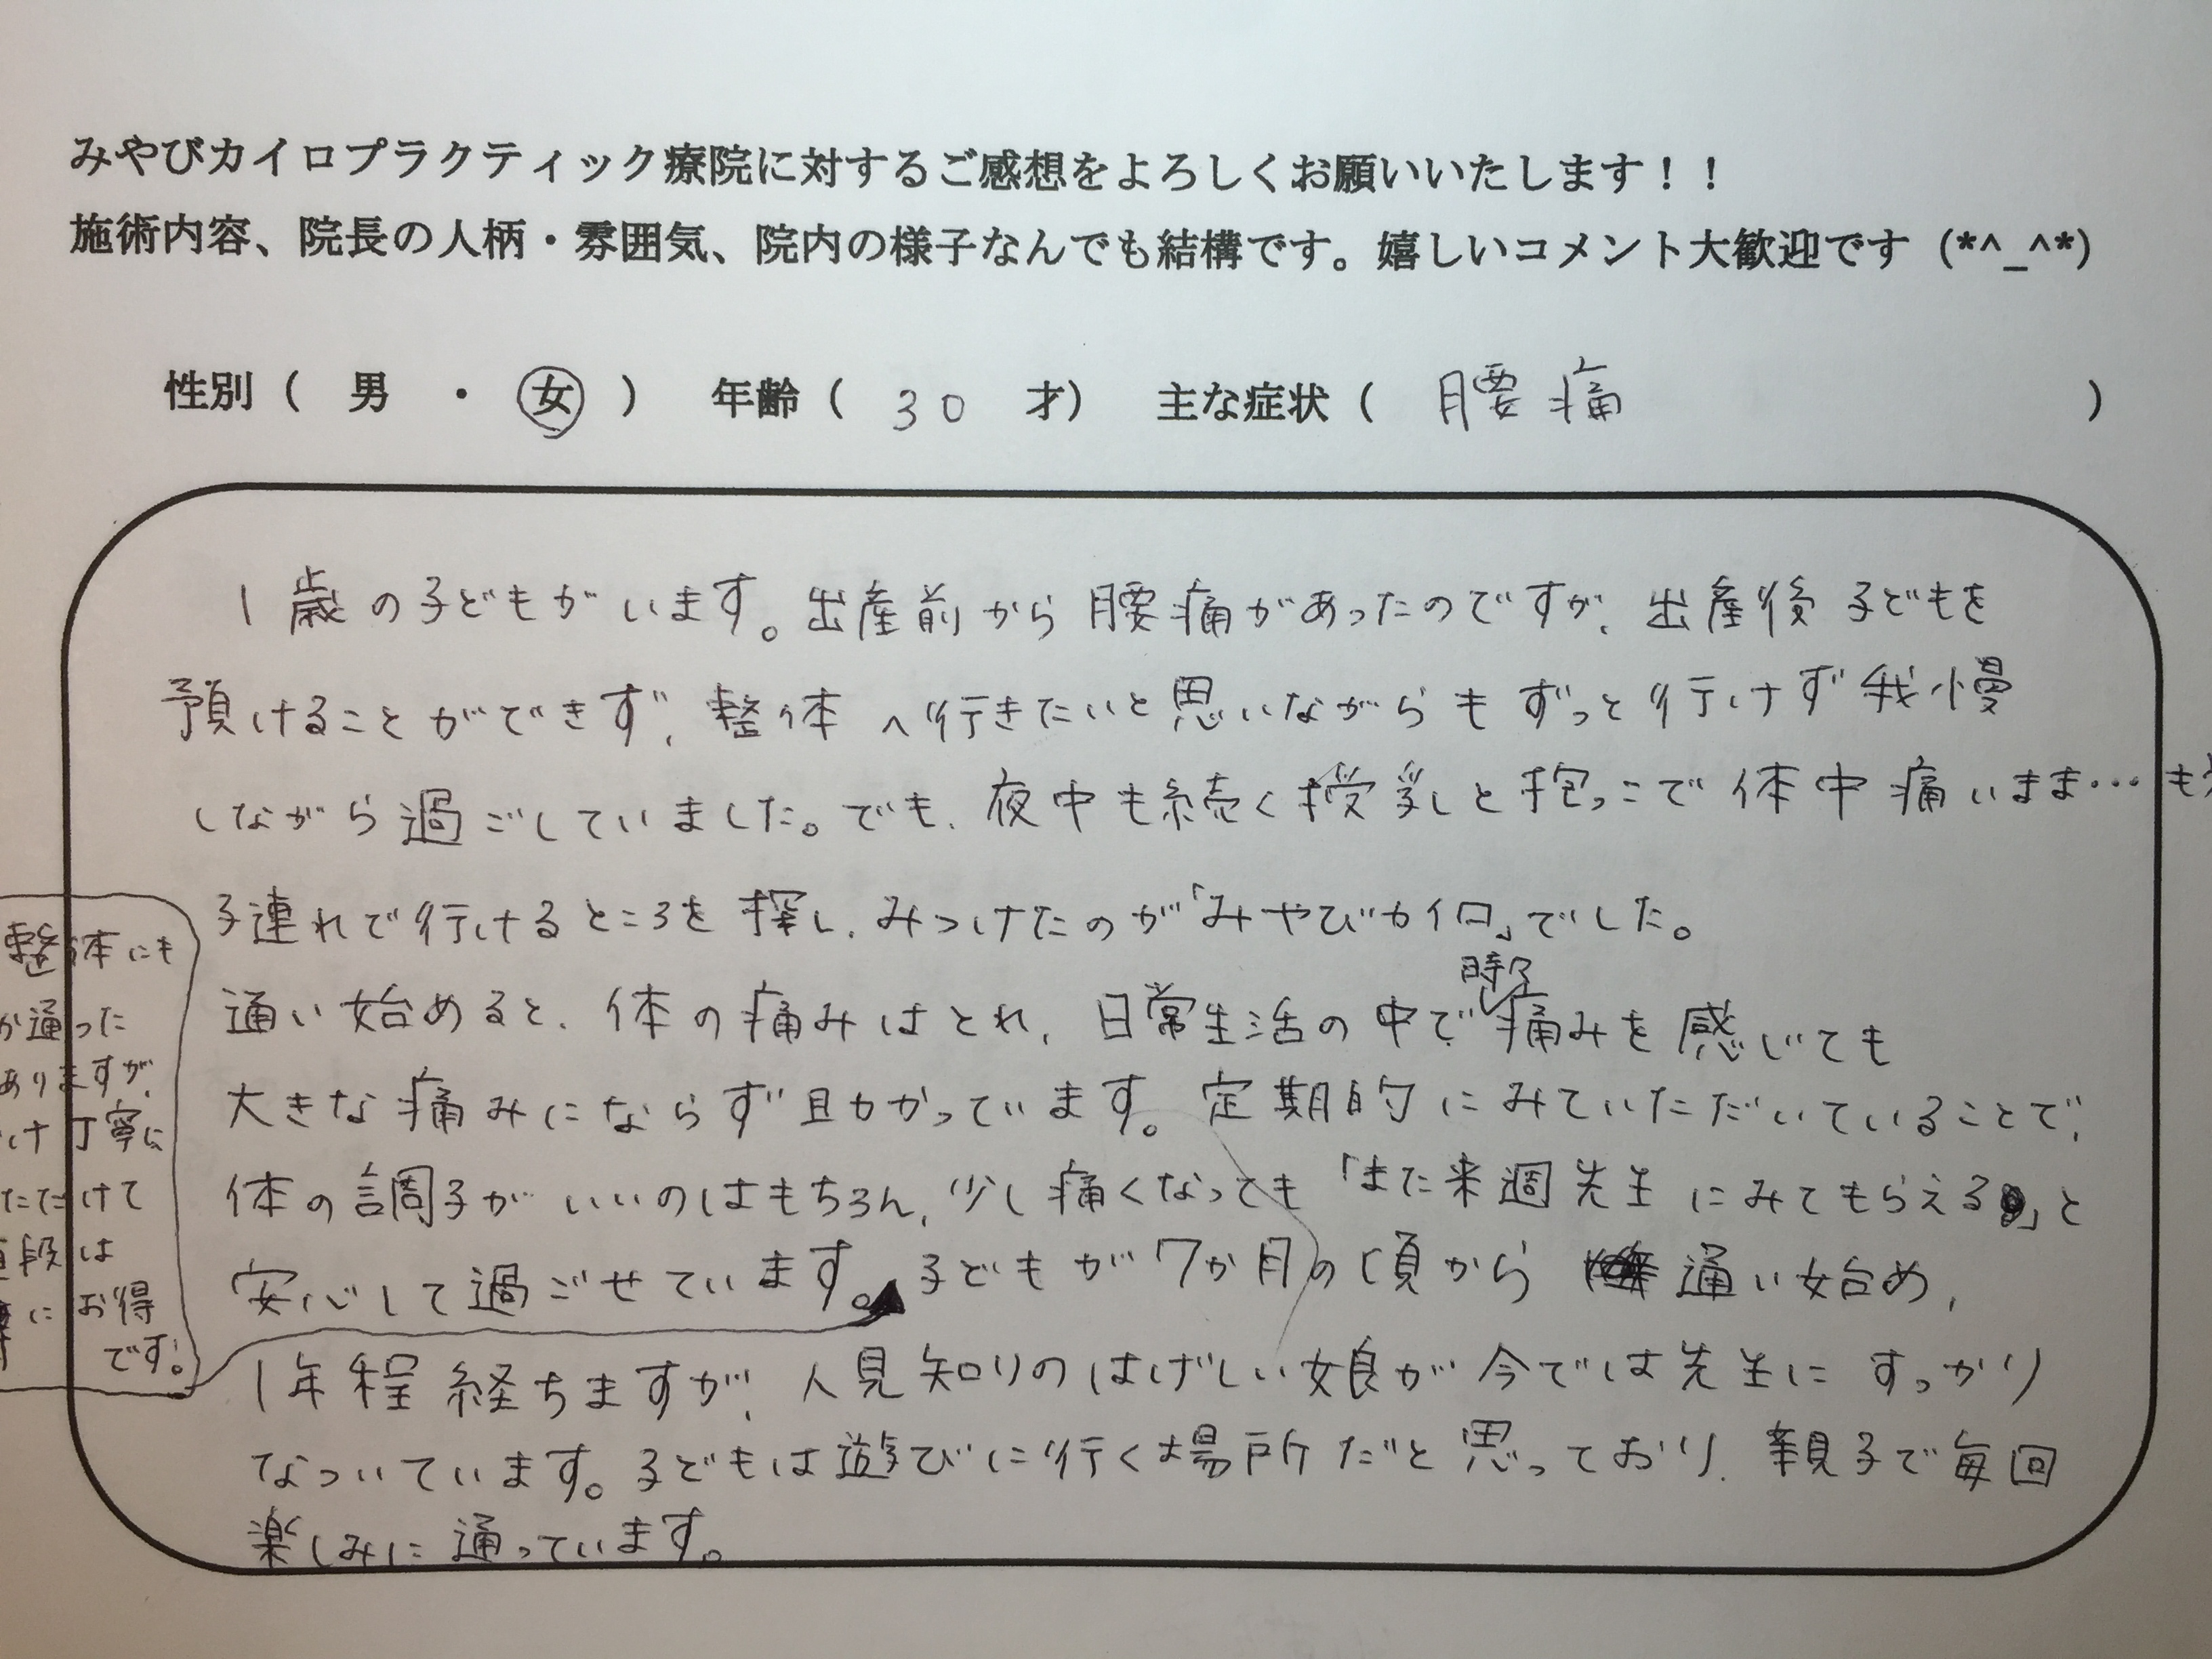 みやびカイロプラクティック療院に対するご感想をよろしくお願いいたします！！
施術内容、院長の人柄・雰囲気、院内の様子なんでも結構です。嬉しいコメント大歓迎です（*^_^*）
性別（ 男 ・ 女 ） 年齢（ 30 才） 主な症状（ 腰痛 ）
1歳の子どもがいます。出産前から腰痛があったのですが、出産後子どもを
預けることができず、整体へ行きたいと思いながらもずっと行けず我慢
しながら過ごしていました。でも、夜中も続く授乳と抱っこで体中痛いまま…も
子連れで行けるところを探し、みつけたのが「みやびカイロ」でした。
通い始めると、体の痛みはとれ、日常生活の中で時々痛みを感じても
大きな痛みにならず助かっています。定期的にみていただいていることで、
体の調子がいいのはもちろん、少し痛くなっても「また来週先生にみてもらえる」と
安心して過ごせています。子どもが7か月の頃から通い始め、
1年程経ちますが、人見知りのはげしい娘が今では先生にすっかり
なついています。子どもは遊びに行く場所だと思っており、親子で毎回
楽しみに通っています。
整体にも
か通った
ありますが、
け丁寧に
ただけて
段は
にお得
です。